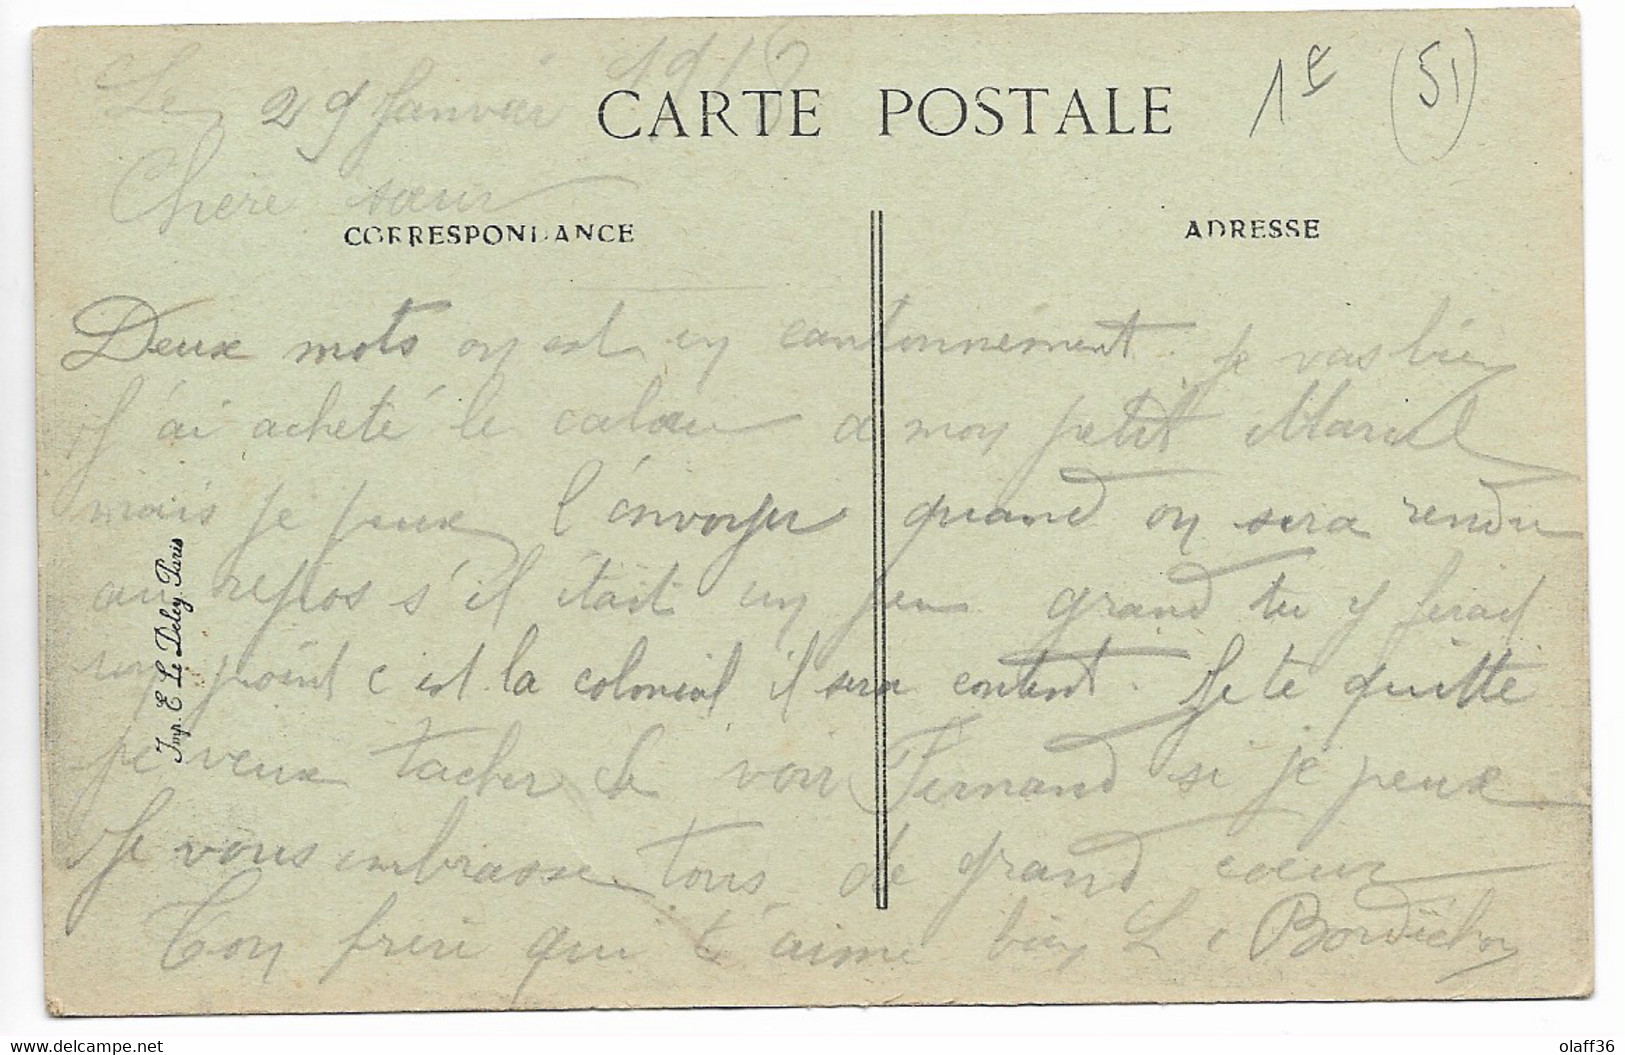 Le 29 Janvier 1918
CARTE POSTALE
1€ (51)
Chère sœur
CORRESPONDANCE
ADRESSE
Deux mots on est en cantonnement je vas bien
J'ai acheté le calou a mon petit Marcel
mais je peux l'envoyer quand on sera rendu
au repos s'il était un peu grand tu y ferad
un point c est la colonial il sera content. Je te quitte
je veux tacher de voir Fernand si je peux
Je vous embrasse tous de grand cœur
Ton frere qui t'aime bien L Bordichon
Imp. E. Le Deley, Paris
www.delcampe.net
olaff36